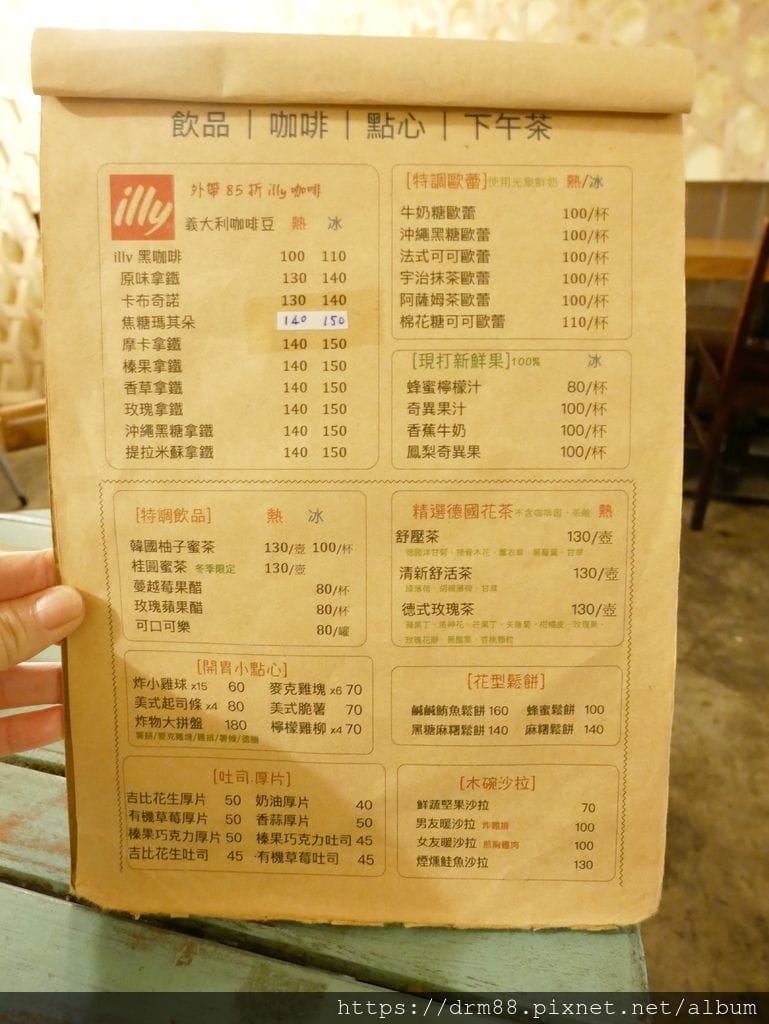 飲品｜咖啡｜點心｜下午茶
illy
外帶 85 折 illy 咖啡
義大利咖啡豆 熱 冰
illy 黑咖啡 100 110
原味拿鐵 130 140
卡布奇諾 130 140
焦糖瑪其朵 140 150
摩卡拿鐵 140 150
榛果拿鐵 140 150
香草拿鐵 140 150
玫瑰拿鐵 140 150
沖繩黑糖拿鐵 140 150
提拉米蘇拿鐵 140 150
[特調歐蕾]使用光泉鮮奶 熱/冰
牛奶糖歐蕾 100/杯
沖繩黑糖歐蕾 100/杯
法式可可歐蕾 100/杯
宇治抹茶歐蕾 100/杯
阿薩姆茶歐蕾 100/杯
棉花糖可可歐蕾 110/杯
[現打新鮮果]100% 冰
蜂蜜檸檬汁 80/杯
奇異果汁 100/杯
香蕉牛奶 100/杯
鳳梨奇異果 100/杯
[特調飲品] 熱 冰
韓國柚子蜜茶 130/壺 100/杯
桂圓蜜茶 冬季限定 130/壺
蔓越莓果醋 80/杯
玫瑰蘋果醋 80/杯
可口可樂 80/罐
精選德國花茶 不含咖啡因、茶鹼 熱
舒壓茶 130/壺
清新舒活茶 130/壺
德式玫瑰茶 130/壺
[開胃小點心]
炸小雞球 x15 60 麥克雞塊 x6 70
美式起司條 x4 80 美式脆薯 70
炸物大拼盤 180 檸檬雞柳 x4 70
[花型鬆餅]
鹹鹹鮪魚鬆餅 160 蜂蜜鬆餅 100
黑糖麻糬鬆餅 140 麻糬鬆餅 140
[吐司.厚片]
吉比花生厚片 50 奶油厚片 40
有機草莓厚片 50 香蒜厚片 50
榛果巧克力厚片 50 榛果巧克力吐司 45
吉比花生吐司 45 有機草莓吐司 45
[木碗沙拉]
鮮蔬堅果沙拉 70
男友暖沙拉 炸雞排 100
女友暖沙拉 煎胸雞肉 100
煙燻鮭魚沙拉 130
https://drm88.pixnet.net/album